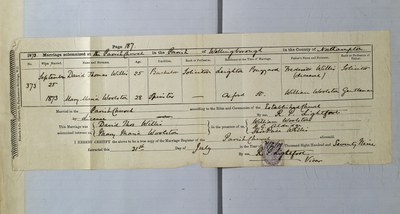 Page 187.
1873. Marriage solemnized at the Parish Church in the Parish of Wellingborough in the County of Northampton
No. When Married. Name and Surname. Age. Condition. Rank or Profession. Residence at the Time of Marriage. Father's Name and Surname. Rank or Profession.
373 September 25th 1873 David Thomas Willis 25 Bachelor Solicitor Leighton Buzzard Frederick Willis (deceased) Solicitor
Mary Maria Woolston 28 Spinster — Oxford St William Woolston Gentleman
Married in the Parish Church according to the Rites and Ceremonies of the Established Church
by Licence by me, R. P. Lightfoot
This Marriage was solemnized between us David Thos Willis Mary Maria Woolston in the presence of us William Woolston
Willis
I HEREBY CERTIFY the above to be a true copy of the Marriage Register of the Parish Church aforesaid
Extracted this 31st day of July Thousand Eight Hundred and Seventy Nine
By me R. P. Lightfoot
Vicar